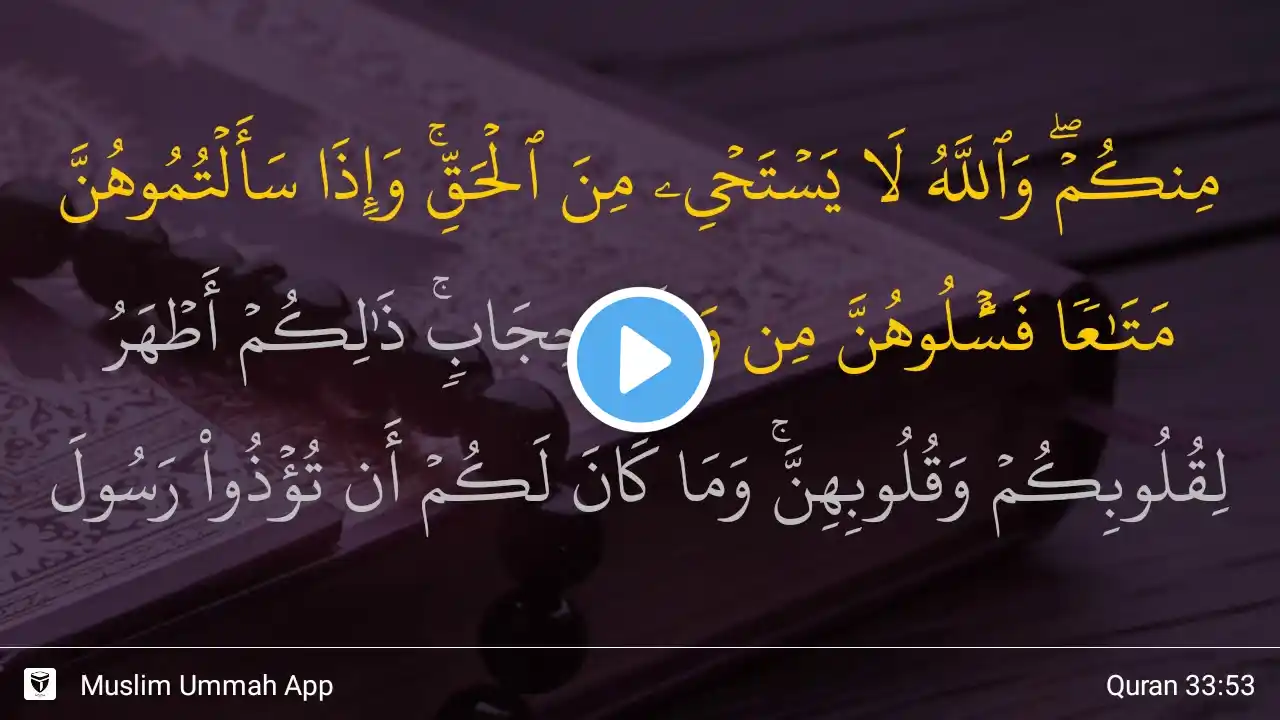 مِنكُمۡۖ وَٱللَّهُ لَا يَسۡتَحۡيِۦ مِنَ ٱلۡحَقِّۚ وَإِذَا سَأَلۡتُمُوهُنَّ
مَتَٰعٗا فَسۡـَٔلُوهُنَّ مِن حِجَابٖۚ ذَٰلِكُمۡ أَطۡهَرُ
لِقُلُوبِكُمۡ وَقُلُوبِهِنَّۚ وَمَا كَانَ لَكُمۡ أَن تُؤۡذُواْ رَسُولَ
Muslim Ummah App
Quran 33:53